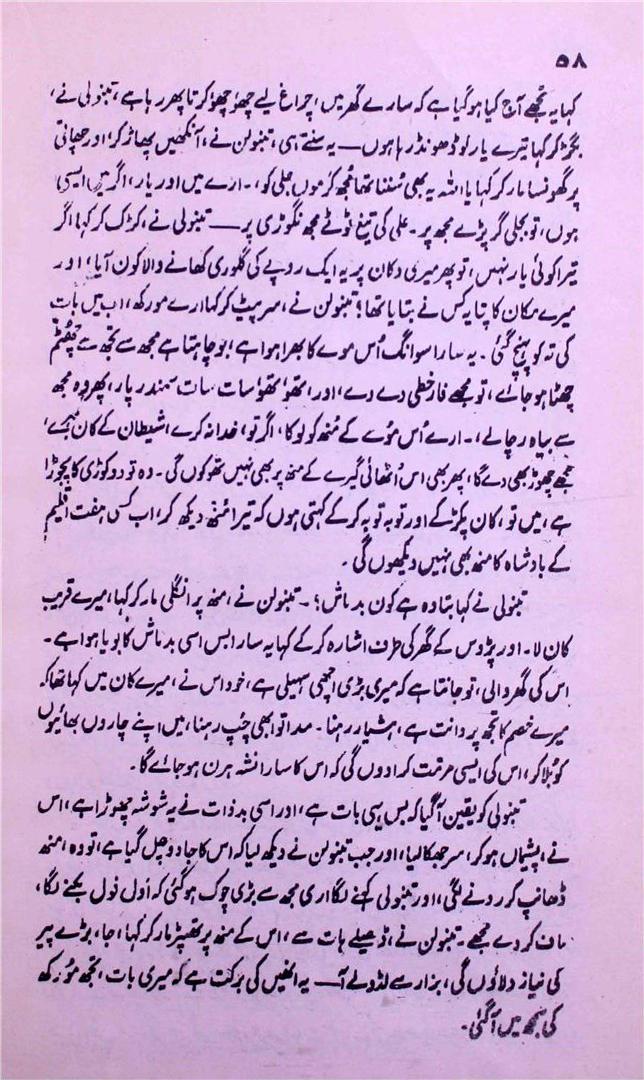 ۵۸
کہا یہ تجھے آج کیا ہو گیا ہے کہ سارے گھر میں، چراغ لیے چھوٗ چھوٗ کرتا پھر رہا ہے، تنبولی نے،
بگڑ کر کہا تیرے یار کو ڈھونڈ رہا ہوں — یہ سنتے ہی، تنبولن نے، آنکھیں پھاڑ کر، اور چھاتی
پر گھونسا مار کر کہا یا اللہ یہ بھی سُننا تھا مجھ کرموں جلی کو،۔ ارے میں اور یار، اگر میں ایسی
ہوں، تو بجلی گر پڑے مجھ پر۔ علی کی تیغ ٹوٹے مجھ نگوڑی پر — تنبولی نے، کڑک کر کہا، اگر
تیرا کوئی یار نہیں، تو پھر میری دکان پر یہ ایک روپے کی گلوری کھانے والا کون آیا، اور
میرے مکان کا پتا یہ کس نے بتایا تھا؟ تنبولن نے، سر پیٹ کر کہا، ارے مورکھ، اب میں بات
کی تہ کو پہنچ گئی۔ یہ سارا سوانگ اُس موے کا بھرا ہوا ہے، جو چاہتا ہے مجھ سے تجھ سے چھٹم
چھٹا ہو جائے، تو مجھے فارخطی دے دے، اور، تھوٗ تھوٗ سات سات سمندر پار، پھر وہ مجھ
سے بیاہ رچا لے،۔ ارے اُس مُوے کے مُنھ کو لوکا، اگر تو، خدا نہ کرے، شیطان کے کان بہرے،
مجھے چھوڑ بھی دے گا، پھر بھی اس اُٹھائی گیرے کے منھ پر بھی نہیں تھوکوں گی۔ وہ تو دو کوڑی کا چھوڑا
ہے، میں تو، کان پکڑ کے اور توبہ توبہ کر کے کہتی ہوں کہ تیرا منھ دیکھ کر، اب کسی ہفت اقلیم
کے بادشاہ کا منھ بھی نہیں دیکھوں گی۔
تنبولی نے کہا بتا وہ ہے کون بدماش؟۔ تنبولن نے، منھ پر انگلی مار کر کہا، میرے قریب
کان لا۔ اور پڑوس کے گھر کی طرف اشارہ کر کے کہا یہ سارا بس اسی بدماش کا بویا ہوا ہے۔
اس کی گھر والی، تو جانتا ہے کہ میری بڑی اچھی سہیلی ہے، خود اس نے، میرے کان میں کہا تھا کہ
میرے خصم کا تجھ پر دانت ہے، ہشیار رہنا۔ تو ابھی چُپ رہنا، میں اپنے چاروں بھائیوں
کو بُلا کر، اس کی ایسی مرمّت کرا دوں گی کہ اس کا سارا نشہ ہرن ہو جائے گا۔
تنبولی کو یقین آ گیا کہ بس یہی بات ہے، اور اسی بدذات نے یہ شوشہ چھوڑا ہے، اس
نے، پشیماں ہو کر، سر جھکا لیا، اور جب تنبولن نے دیکھ لیا کہ اس کا جادو چل گیا ہے، تو وہ، منھ
ڈھانپ کر رونے لگی، اور تنبولی کہنے لگا اری مجھ سے بڑی چوک ہو گئی کہ اَول فَول بکنے لگا،
ماف کر دے مجھے۔ تنبولن نے، ڈھیلے ہات سے، اس کے منھ پر تھپڑ مار کر کہا، جا، بڑے پیر
کی نیاز دلاؤں گی، بزار سے لڈو لے آ — یہ انھیں کی برکت ہے کہ میری بات، تجھ مورکھ
کی سمجھ میں آ گئی۔